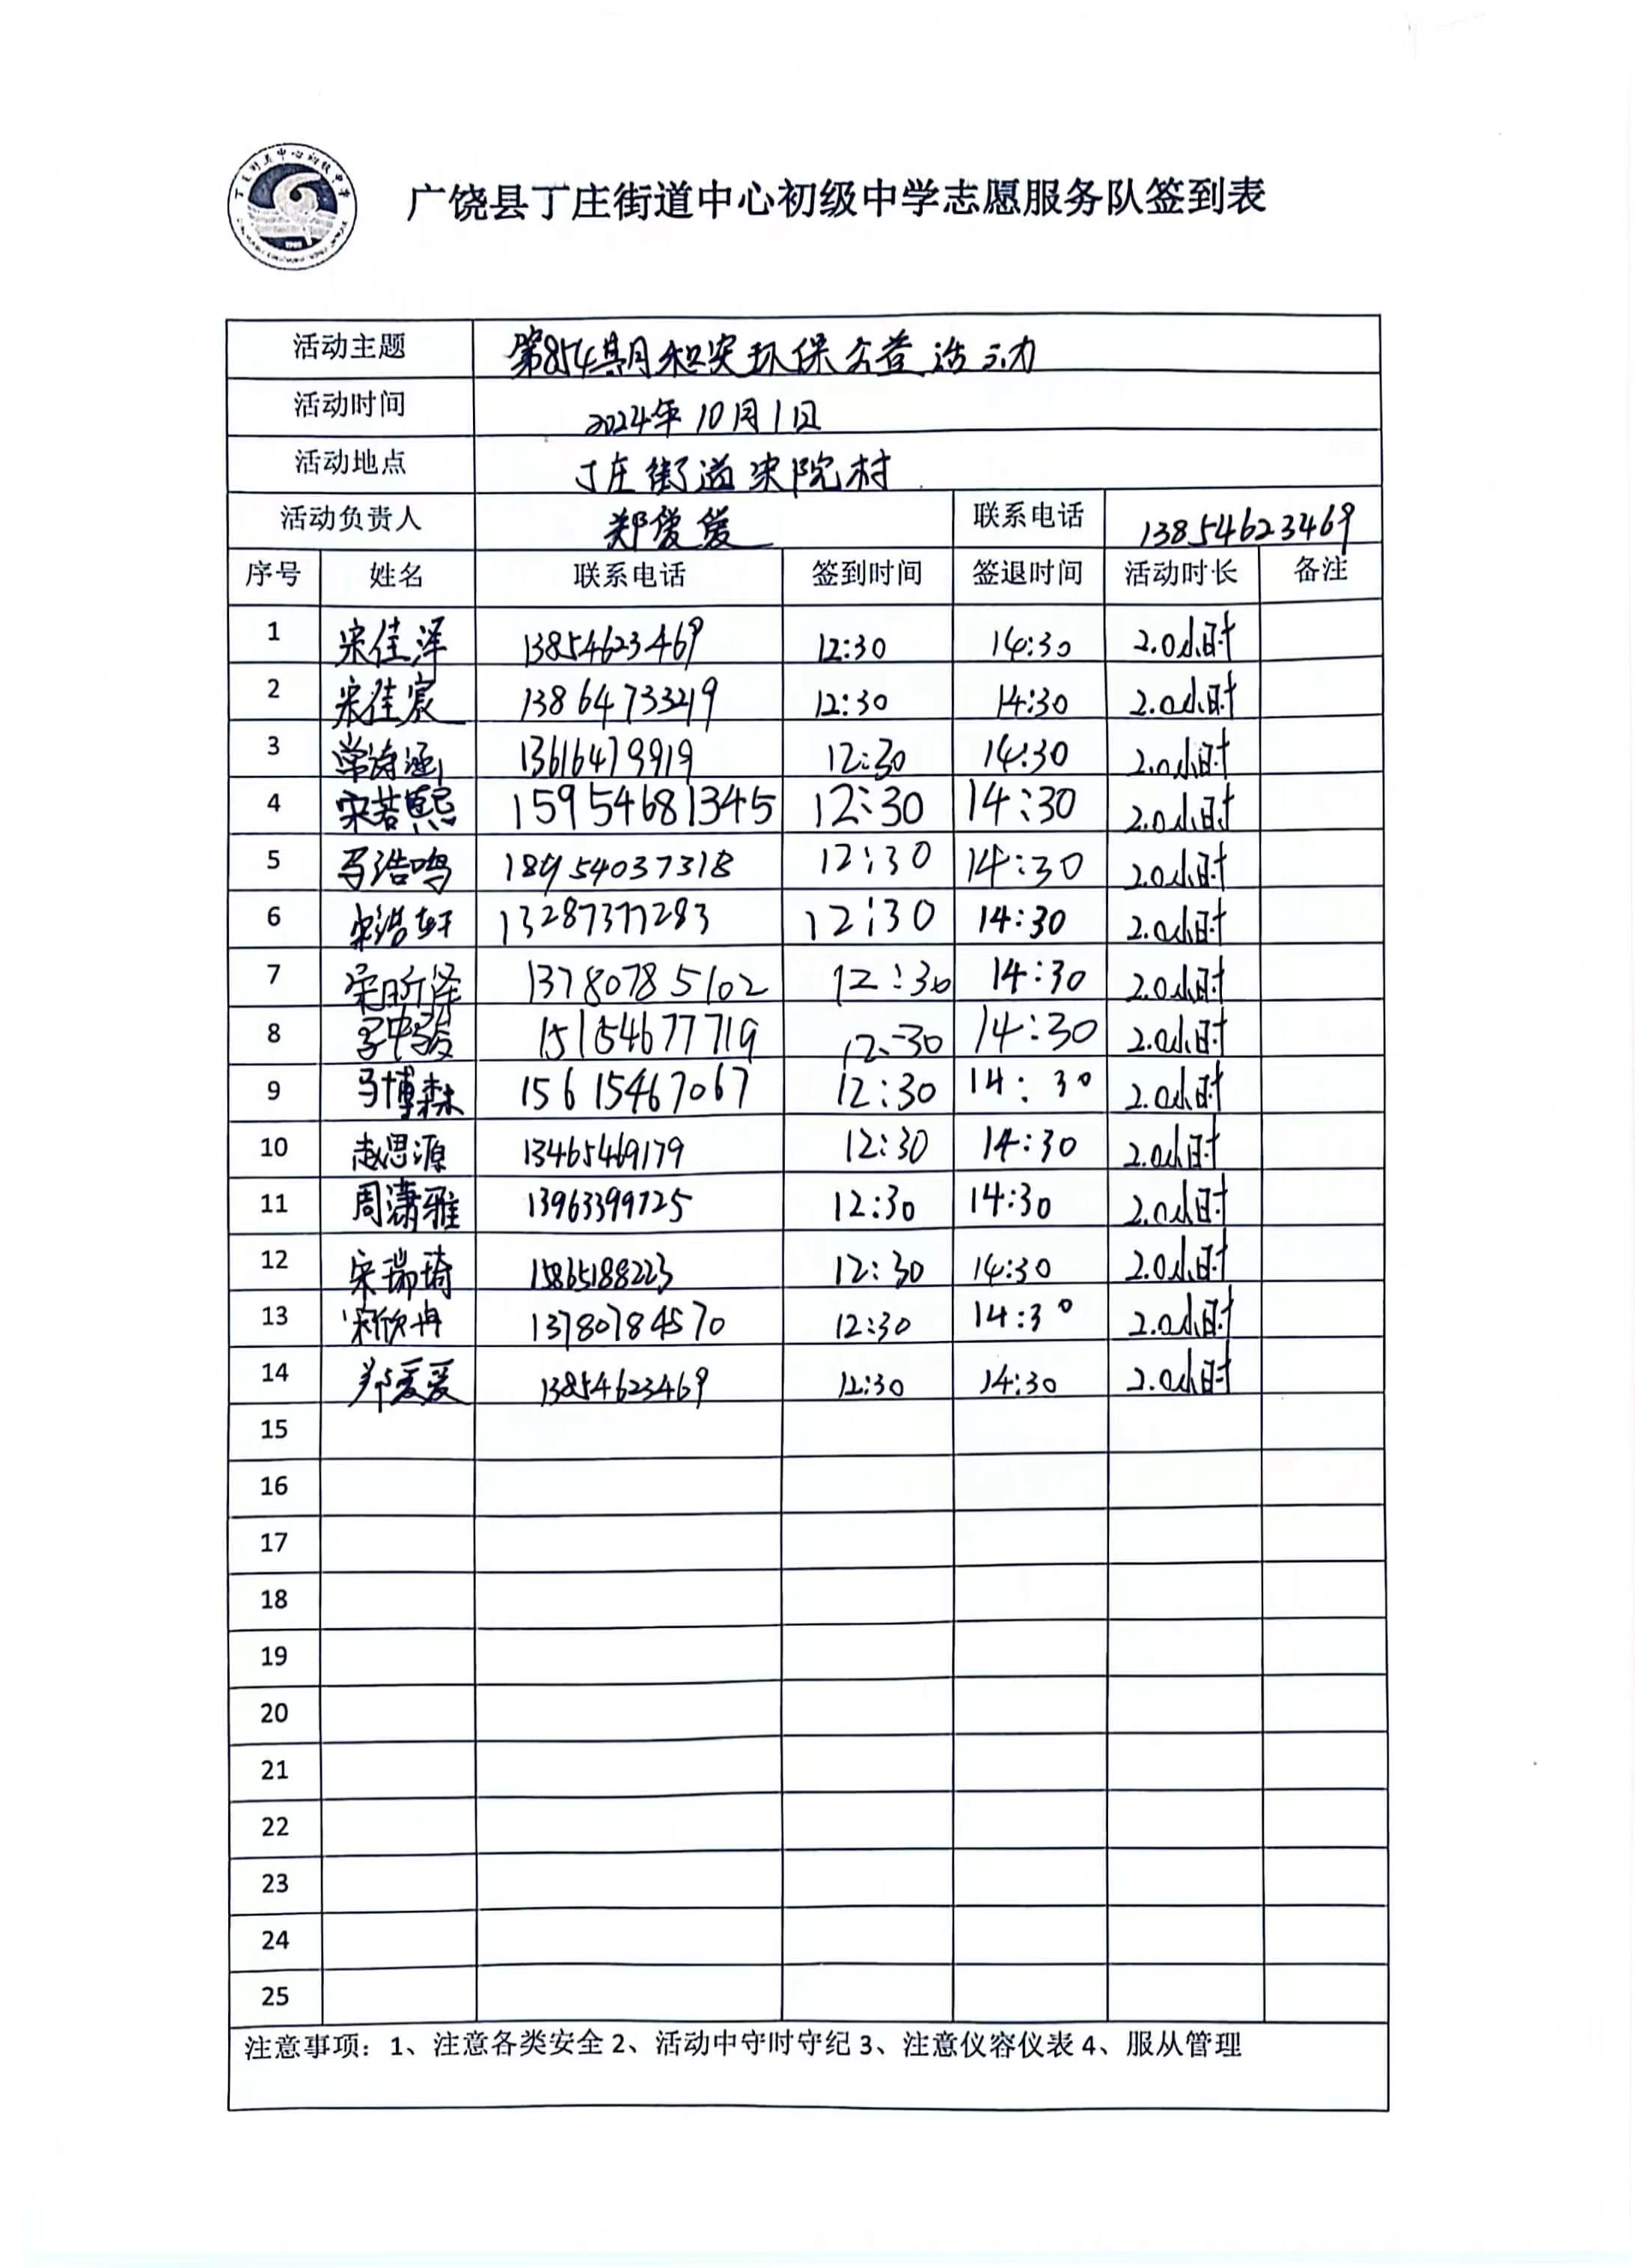 广饶县丁庄街道中心初级中学志愿服务队签到表
活动主题 第854期和安环保公益活动
活动时间 2024年10月1日
活动地点 丁庄街道宋院村
活动负责人 郑爱爱 联系电话 13854623469
序号 姓名 联系电话 签到时间 签退时间 活动时长 备注
1 宋佳泽 13854623469 12:30 14:30 2.0小时
2 宋佳宸 13864733219 12:30 14:30 2.0小时
3 常诗涵 13616479919 12:30 14:30 2.0小时
4 宋若熙 15954681345 12:30 14:30 2.0小时
5 马浩鸣 18954037318 12:30 14:30 2.0小时
6 宋浩轩 13287377283 12:30 14:30 2.0小时
7 宋昕泽 13780785102 12:30 14:30 2.0小时
8 15154677719 12:30 14:30 2.0小时
9 马博森 15615467067 12:30 14:30 2.0小时
10 赵思源 13465469179 12:30 14:30 2.0小时
11 周潇雅 13963399725 12:30 14:30 2.0小时
12 宋瑞琦 15865188223 12:30 14:30 2.0小时
13 宋欣冉 13780784570 12:30 14:30 2.0小时
14 郑爱爱 13854623469 12:30 14:30 2.0小时
15
16
17
18
19
20
21
22
23
24
25
注意事项：1、注意各类安全 2、活动中守时守纪 3、注意仪容仪表 4、服从管理